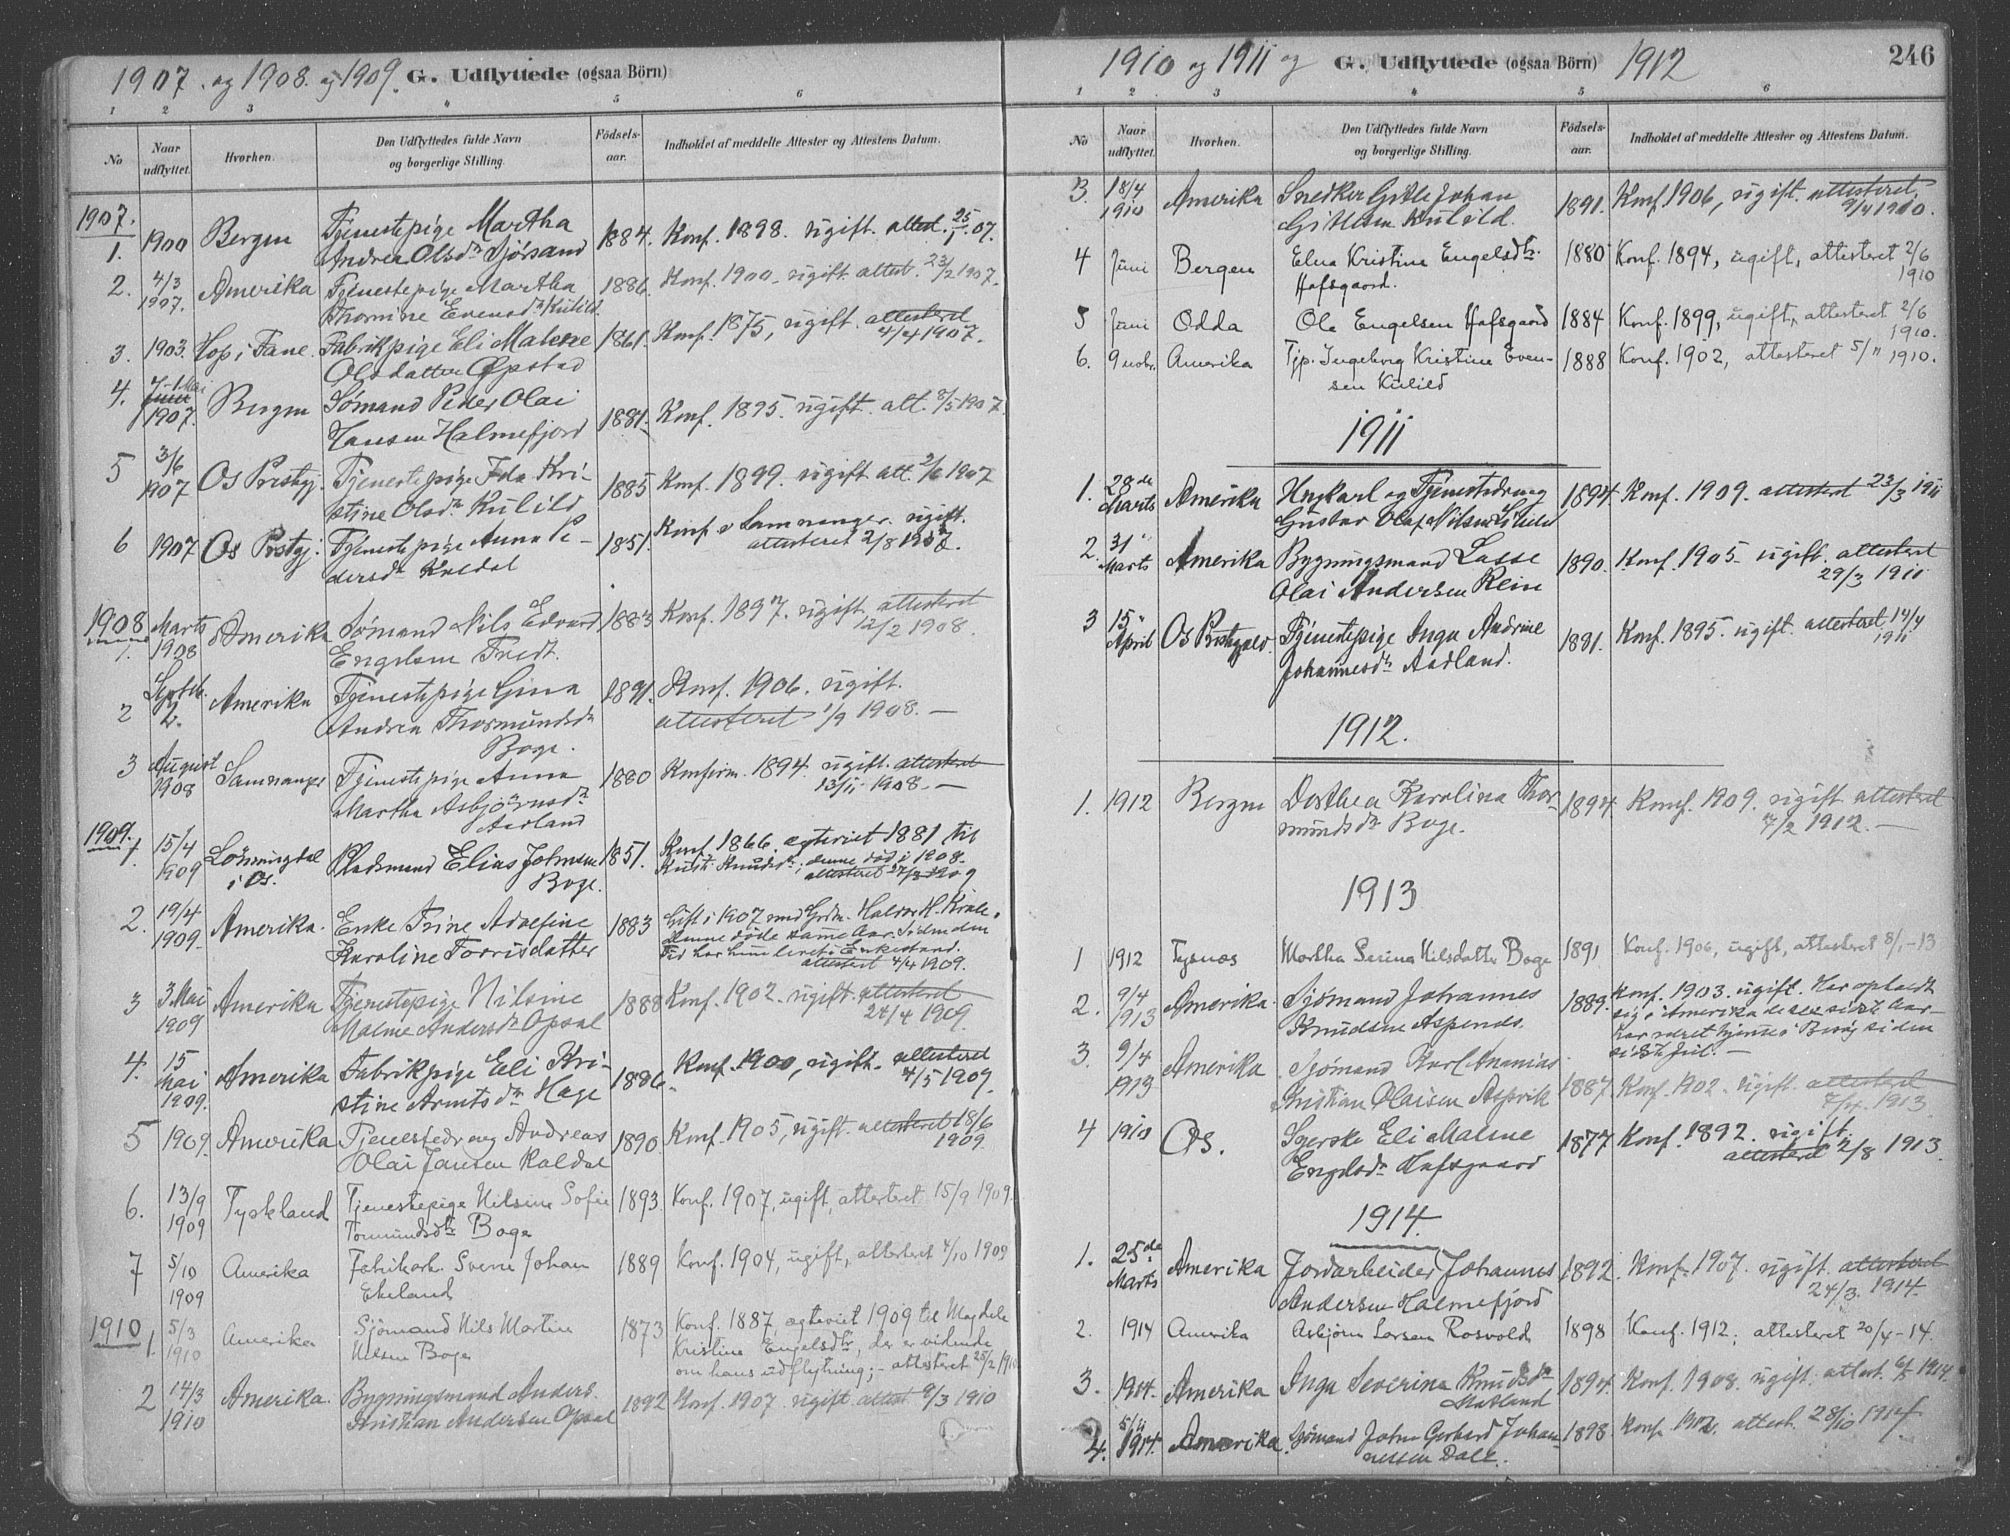 1907. og 1908. og 1909. G. Udflyttede (ogsaa Börn)
1 2 3 4 5 6
No
Naar udflyttet.
Hvorhen.
Den Udflyttedes fulde Navn
og borgerlige Stilling.
Födsels-
aar.
Indholdet af meddelte Attester og Attestens Datum.
1907.
1. 1900 Bergen Tjenestepige Martha 1884. Konf. 1898. ugift. attest. 25/1 07.
Andrea Olsdr Sjørsand
2. 4/3 1907. Amerika Tjenestepige Martha 1886. Konf. 1900. ugift. attest. 23/2 1907.
Thomine Evensdr Kulild.
3. 1903. Hop i Fane. Fabrikpige Eli Malene 1861. Konf. 1875, ugift. attesteret
4/4 1907.
Olsdatter Øpstad
4. 1. Mai 1907. Bergen Sømand Peder Olai 1881. Konf. 1895. ugift. att. 8/5 1907.
Hansen Halmefjord
5 3/6 1907 Os Prstgj. Tjenestepige Ida Kri- 1885 Konf. 1899. ugift att. 2/6 1907
stine Olsdr Kulild
6 1907 Os Prstgj. Tjenestepige Anna Pe- 1851. Konf. i Samnanger. ugift.
attesteret 2/8 1907.
dersdr Kaldal
1908
1. Marts 1908 Amerika Sømand Nils Edvard 1883 Konf. 1897. ugift. attesteret
12/2 1908.
Engelsen Tvedt.
2 Septbr. 2. Amerika Tjenestepige Gina 1891. Konf. 1906. ugift.
Andrea Thormundsdr attesteret 1/9 1908. —
Boge.
3 August 1908 Samnanger Tjenestepige Anna 1880 Konfirm. 1894. ugift. attesteret
13/11 1908. —
Martha Asbjörnsdr
Aadland
1909.
1. 15/4 1909 Lønningdal i Os. Pladsmand Elias Johnsen 1851. Konf. 1866. egteviet 1881 til
Boge. Kristi Knudsdr; denne död i 1908.
attesteret 27/3 1909
2. 19/4 1909. Amerika. Enke Trine Adolfine 1883 Gift i 1907 med Grdm. Halvor H.
Karoline Torrisdatter denne døde samme Aar. Siden den
Tid har hun levet i Enkestand.
attesteret 4/4 1909.
3 3 Mai 1909 Amerika Tjenestepige Nilsine 1888 Konf. 1902. ugift. attesteret
24/4 1909.
Malene Andersdr Opsal
4. 15 Mai 1909. Amerika Fabrikpige Eli Kri- 1886. Konf. 1900, ugift. attesteret
4/5 1909.
stine Arntsdr Hage
5 1909. Amerika Tjenestedreng Andreas 1890. Konf. 1905, ugift. attesteret 18/6
1909.
Olai Jansen Kaldal
6. 13/9 1909 Tyskland Tjenestepige Nilsine Sofie 1893. Konf. 1907, ugift, attesteret 15/9 1909.
Tormundsdtr Boge
7 5/10 1909 Amerika Fabrikarb. Sverre Johan 1889 Konf. 1904, ugift, attesteret 4/10 1909
Ekeland
1910
1. 5/3 1910 Amerika Sjömand Nils Martin 1873 Konf. 1887 egteviet 1909 til Magdele
Nilsen Boge Kristine Engelsdtr, der er vidende
om hans udflytning; - attesteret 28/2 1910
2 14/3 1910 Amerika. Bygningsmand Anders 1892 Konf. 1907. ugift attest 9/3 1910
Kristian Andersen Opsal
1910 og 1911 og G. Udflyttede (ogsaa Börn) 1912
246
1 2 3 4 5 6
No
Naar udflyttet.
Hvorhen.
Den Udflyttedes fulde Navn
og borgerlige Stilling.
Födsels-
aar.
Indholdet af meddelte Attester og Attestens Datum.
3. 18/4 1910 Amerika Snedker Gitle Johan 1891. Konf. 1906, ugift. attesteret
9/4 1910.
Gitlesen Kulild.
4 Juni Bergen Elna Kristine Engelsdtr. 1880 Konf. 1894, ugift, attesteret 2/6
1910
Hafsgaard.
5 Juni Odda Ole Engelsen Hafsgaard 1884 Konf. 1899, ugift, attesteret 2/6
1910.
6. 9 novbr. Amerika Tjp. Ingeborg Kristine Even- 1888 Konf. 1902, attesteret 5/11 1910.
sen Kulild
1911
1. 29de Marts Amerika Ungkarl og Tjenestedreng 1894. Konf. 1909. attesteret 23/3 1911
Gustav Olaf Nilsen
2. 31" Marts Amerika Bygningsmand Lasse 1890. Konf. 1905. ugift. attesteret
29/3 1911
Olai Andersen Rein
3 15" April Os Prstegjeld. Tjenestepige Inga Andrine 1881. Konf. 1895. ugift. attesteret 14/4
1911
Johannesdr Aadland.
1912.
1. 1912 Bergen Dorthea Karolina Thor- 1894. Konf. 1909. ugift attesteret
7/2 1912. —
mundsdr Boge.
1913
1 1912 Tysnæs Martha Serina Nilsdatter Boge 1891 Konf. 1906, ugift, attesteret 8/1-13
2. 9/4 1913 Amerika. Sjømand Johannes 1889. Konf. 1903. ugift. Har opholdt
Knudsen Aspenes. sig i Amerika de sex sidste Aar —
har været hjemme i Besøg siden
sidste Jul. —
3. 9/4 1913 Amerika Sjømand Karl Ananias
Kristian Olaisen Aspvik 1887. Konf. 1902. ugift. attesteret
7/4. 1913.
4 1910 Os. Syerske Eli Malene 1877 Konf. 1892. ugift.
Engelsdr Hafsgaard attesteret 2/8 1913.
1914.
1. 25de Marts Amerika Jordarbeider Johannes 1892. Konf. 1907. ugift. attesteret
24/3. 1914.
Andersen Halmefjord
2. 1914 Amerika Asbjørn Larsen Rosvold 1898 Konf. 1912; attesteret 20/4-14.
3. 1914. Amerika Inga Severina Knudsdr 1894. Konf. 1908. ugift. attest. 1914.
Hatland
4. 5/11 1914. Amerika Sjømand John Gerhard Johan- 1898 Konf. attest. 28/10 1914.
nessen Dale.